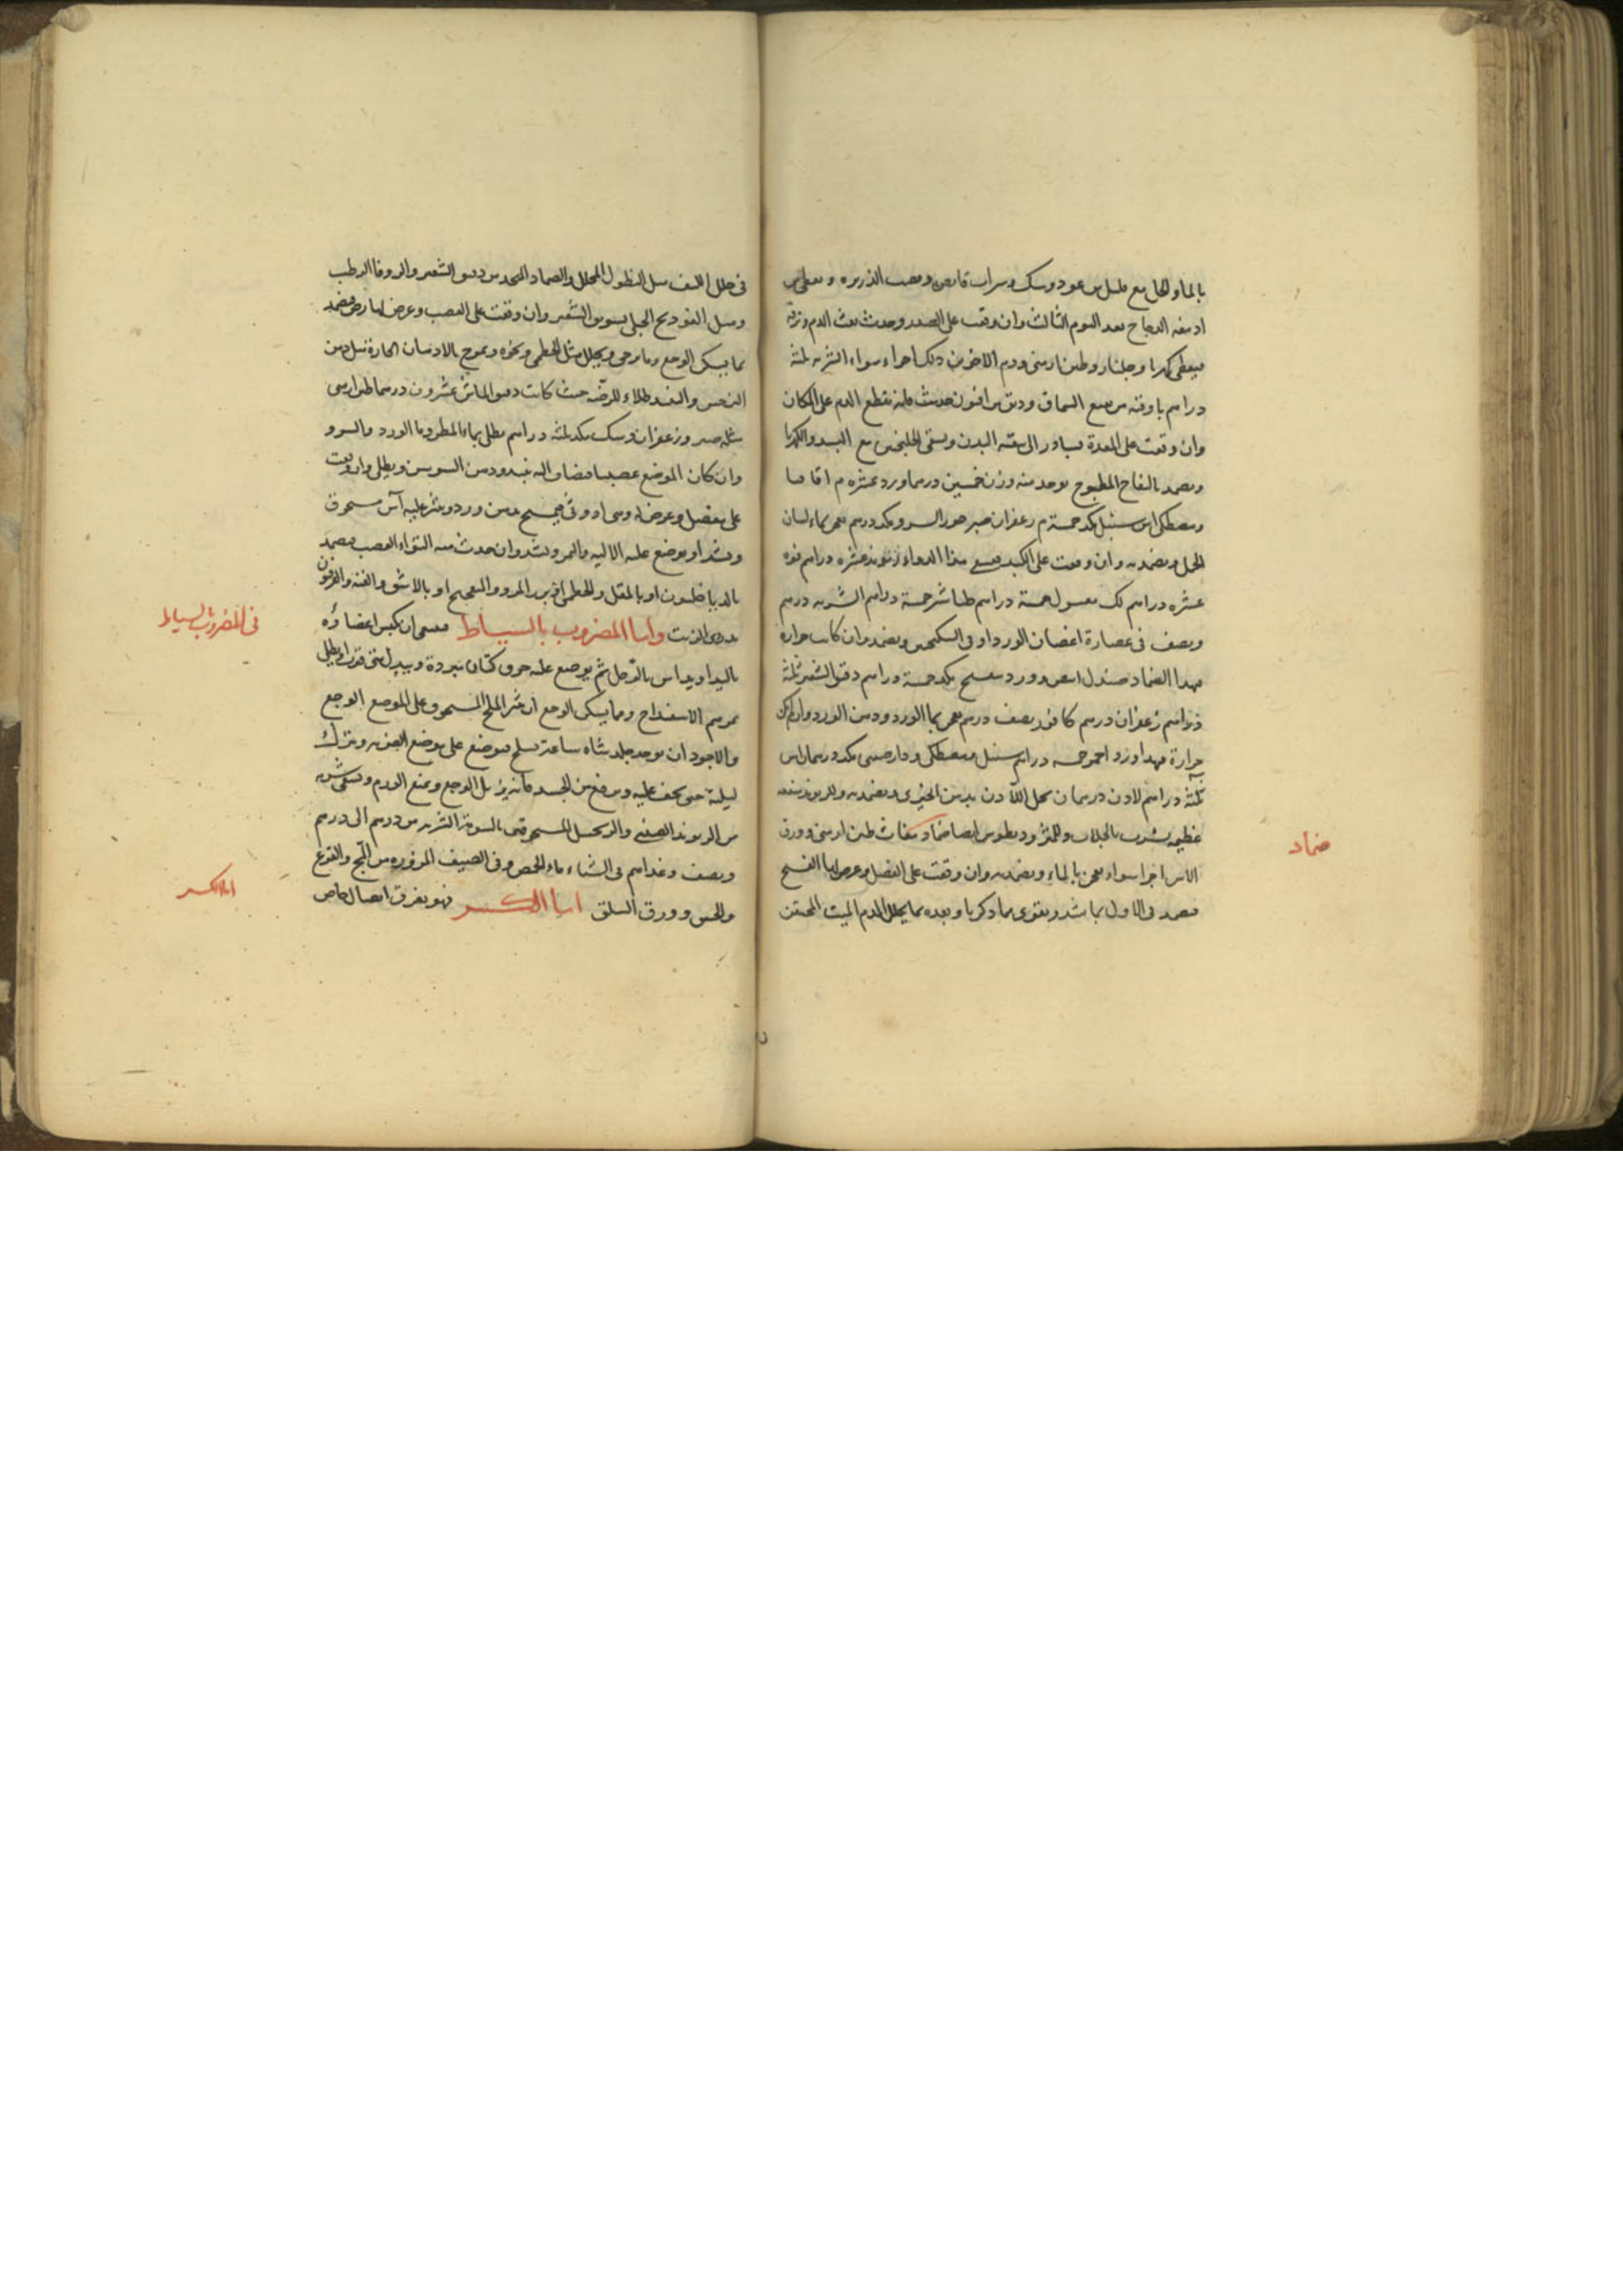 بالماء والخل مع قليل من عود وسك وشراب قابض وقصب الذريره ويعطى من
ادمغه الدجاج بعد اليوم الثالث وان وقعت على الصدر وحدث نفث الدم ونزفه
فيعطى كهربا وجلنار وطين ارمنى ودم الاخوين من ذلك اجزاء سواء الشربه ثلثة
دراهم باوقيه من نقيع السماق ودنق من افيون فانه يقطع الدم على المكان
وان وقعت على المعدة فيبادر الى تنقية البدن ويسقى الجلنجبين مع البسد والكهربا
ويضمد بالتفاح المطبوخ يوخذ منه وزن خمسين درهما ورد عشره م اقاقيا
ومصطكى سنبل مكد خمسة م زعفران صبر جوز السرو مكد درهم يعجن بماء لسان
الحمل ويضمد به وان وقعت على الكبد فيسقى هذا الدواء ريوند عشره دراهم فوه
عشره دراهم لك مغسول خمسة دراهم طباشير خمسة دراهم الشربه درهم
ونصف فى عصارة اغصان الورد او فى السكنجبين ويضمد وان كانت حراره
بهذا الضماد صندل ابيض وورد بنفسج مكد خمسة دراهم دقيق الشعير ثلثة
دراهم زعفران درهم كافور نصف درهم يعجن بماء الورد ودهن الورد وان لم يكن
حرارة فبهذا ورد احمر خمسه دراهم سنبل ومصطكى ودارصينى مكد درهمان اس
ثلثة دراهم لادن درهمان يحل اللادن بدهن الخيرى ويضمد به وللريوند منفعه
عظيمه يشرب بالجلاب وللمثروديطوس ايضا ضماد مغاث طين ارمنى وورق
الاس اجزا سواء يعجن بالماء ويضمد به وان وقعت على المفصل وعرض لها الفسخ
فيضمد فى الاول بما يشد ويقوى مما ذكرنا وبعده بما يحلل الدم الميت المحتقن
ضماد
فى خلل الليف مثل النطول المحلل والضماد المتخذ من دقيق الشعير والزوفا الرطب
ومثل الفوذنج الجبلى بسويق الشعير وان وقعت على العصب وعرض لها رض فيضمد
بما يسكن الوجع وما يرخى ويحلل مثل الخطمى ونحوه ويمرخ بالادهان الحارة مثل دهن
النرجس طلاء للرضّه حيث كانت دقيق الماش عشرون درهما طين ارمنى
مثله صبر وزعفران وسك مكد ثلثه دراهم يطلى بماء المطر وماء الورد والسرو
وان كان الموضع عصبيا فيضاف اليه نبيذ ودهن السوسن ويطلى وان وقعت
على مفصل وعرض له وثى فيمسح بدهن ورد وينثر عليه آس مسحوق
ويشد او يوضع عليه الاليه والتمر ويشد وان حدث منه التواء العصب فيضمد
بالدياخيلون او بالمقل والخطمى وبزر المرو والبفسج او بالاشق والقنه والفرفيون
بدردى الزيت وأما المضروب بالسياط فينبغى ان يكبس اعضاؤه
باليد او يداس بالرجل ثم يوضع عليه خرق كتان مبردة ويبدل متى فترت او يطلى
بمرهم الاسفيداج ومما يسكن الوجع ان ينثر الملح المسحوق على الموضع الوجع
والاجود ان يوخذ جلد شاه ساعة تسلخ فيوضع على موضع الضرب ويترك
ليلة حتى يجف عليه ويرفع من الجسد فانه يزيل الوجع ويمنع الورم ويسقى شربه
من الريوند الصينى والزنجبيل المسحوقين بالسوية الشربه من درهم الى درهم
ونصف وغذاهم فى الشتاء ماء الحمص وفى الصيف المزوره من المج والقرع
والخس وورق السلق اما الكسر فهو تفرق اتصال خاص
فى المضروب بالسياط
اما الكسر